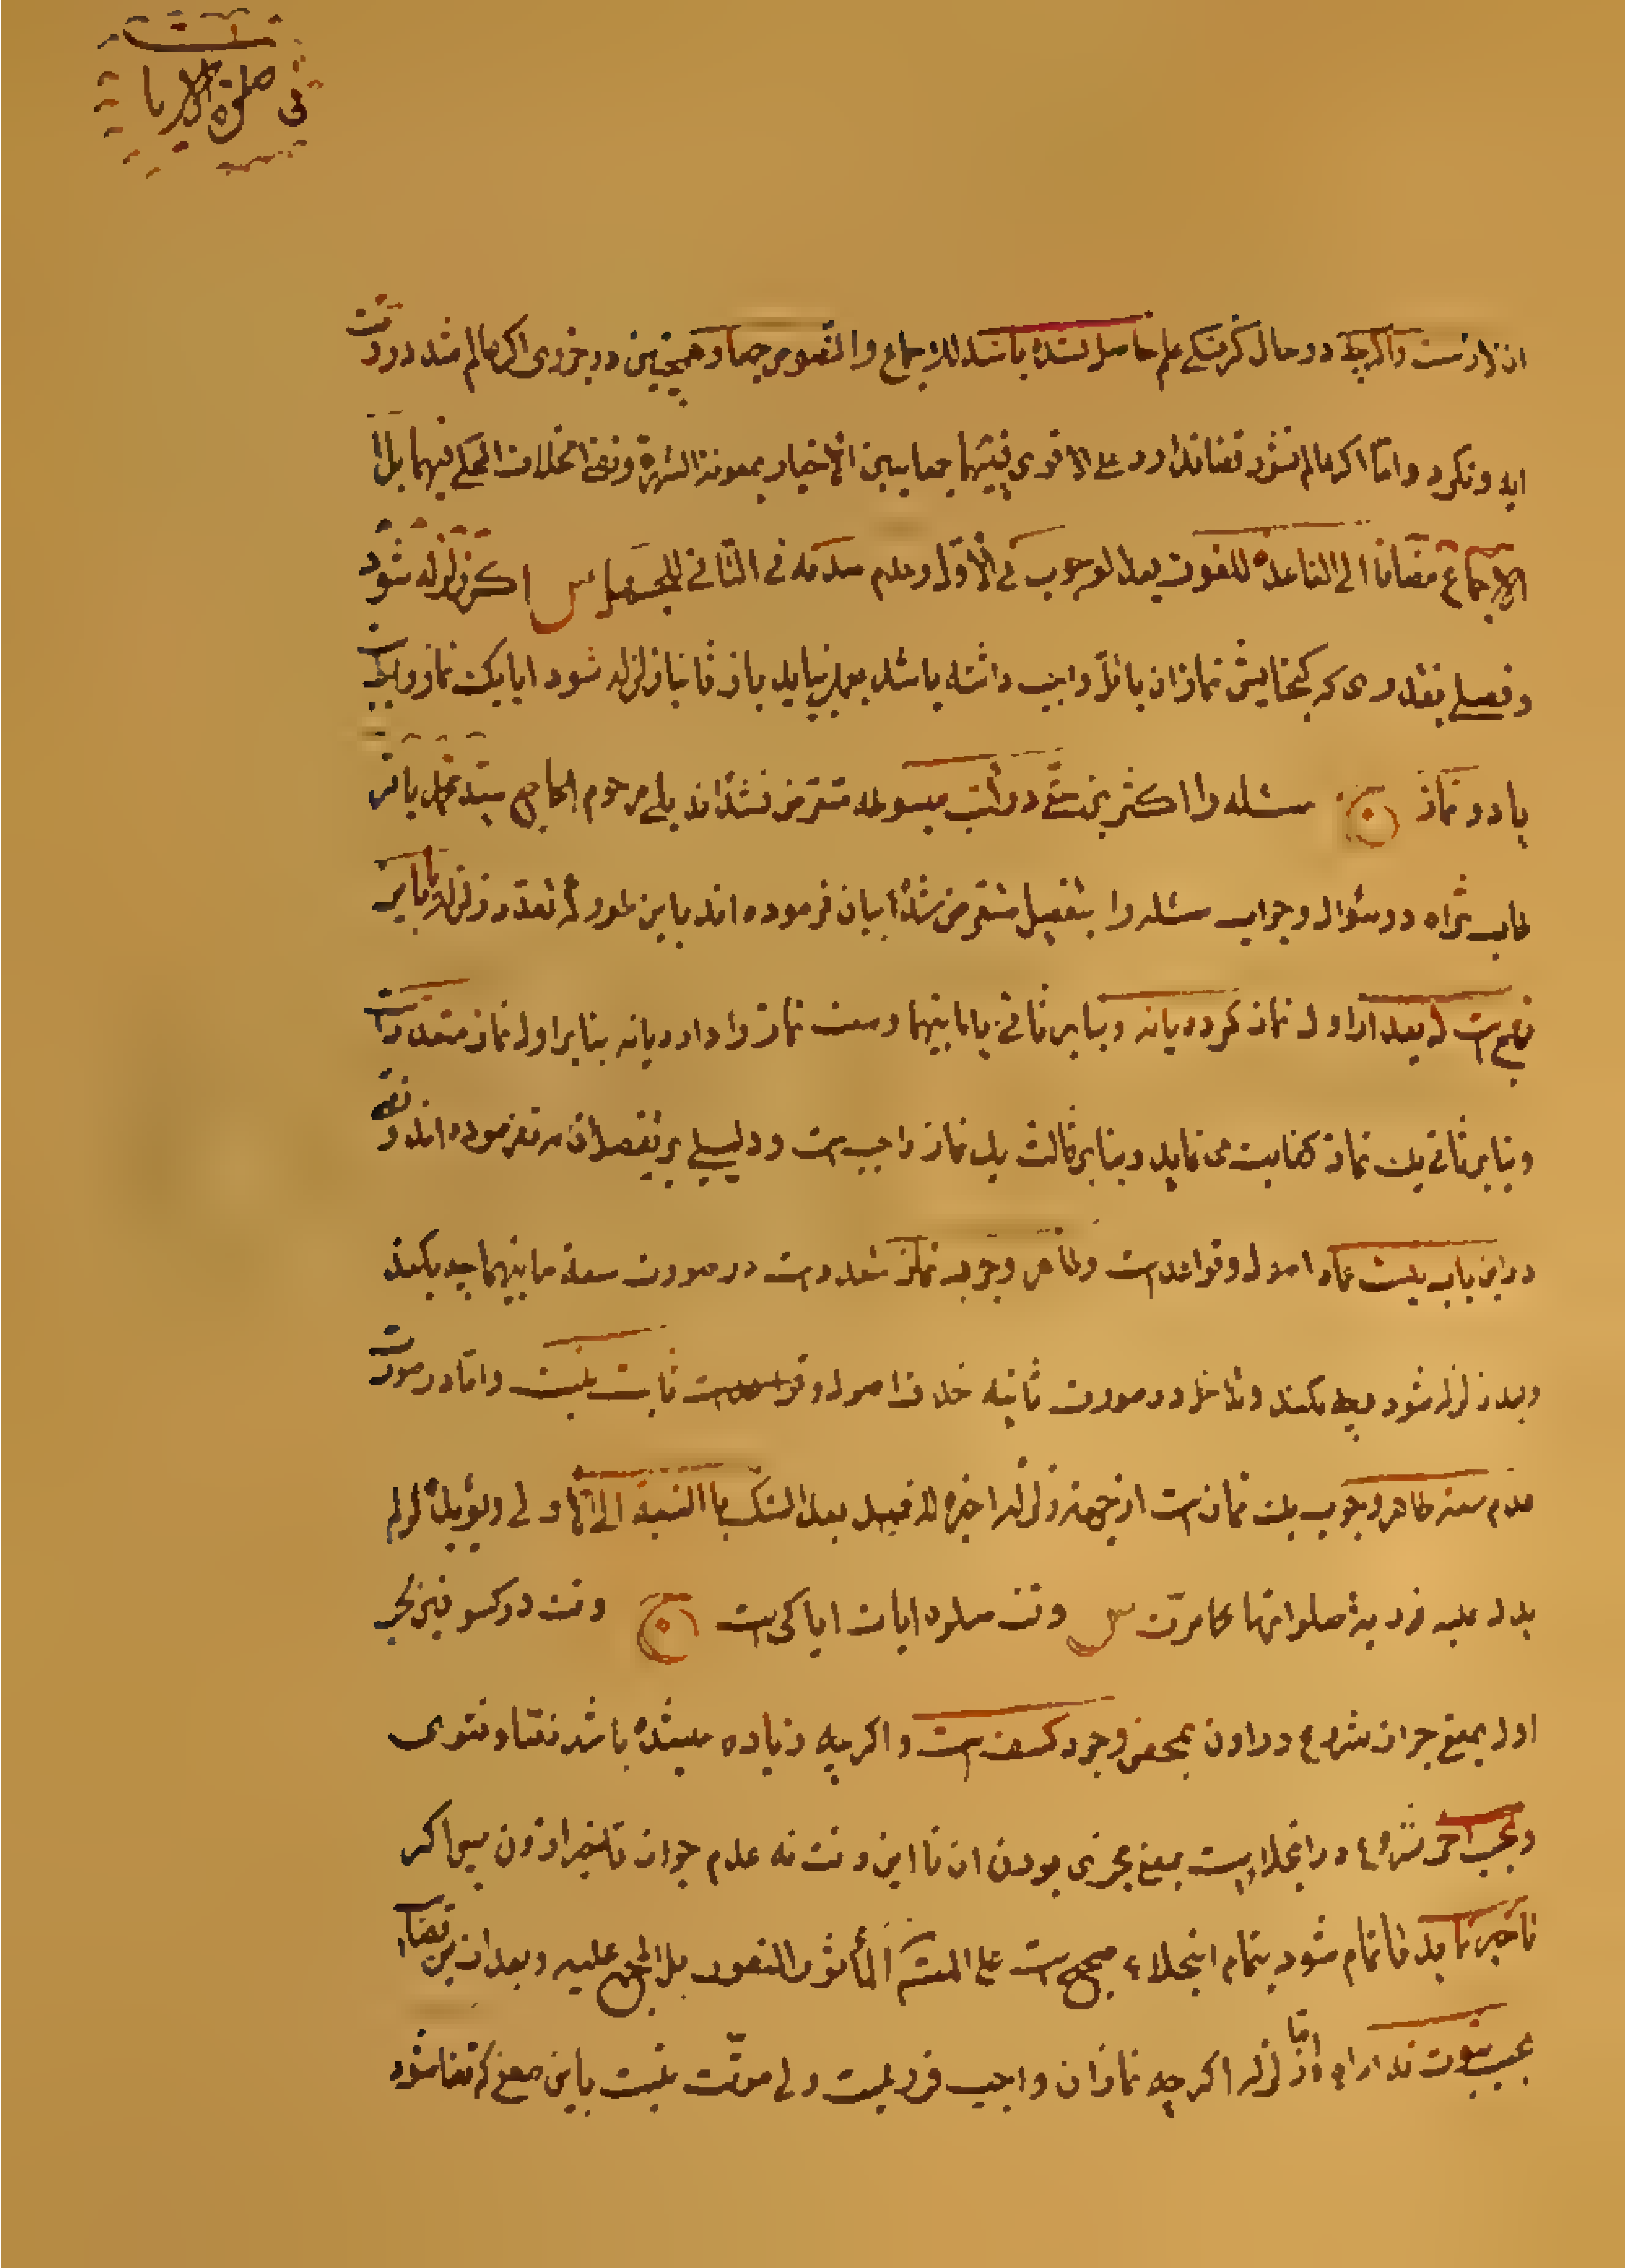 فی صلوة الایات
ان لازمست واکرچه در حال کرفتکی علم حاصل نشده باشد للاجماع والنصوص جمعا وهمچنین در جزوی اکر عالم شد در وقت
اید ونکرد واما اکر عالم نشود قضا ندارد علی الاقوی فیهما جمعا بین الاخبار بمعونة الشهرة ونفی الخلاف المحکی فیهما بل
الاجماع مضافا الی القاعدة للفوت بعد الوجوب فی الاول وعدم صدقه فی الثانی س اکر زلزله شود
وفصلی بقدری که کنجایش نماز ان باقل واجب داشته باشد بعمل نیاید باز ثانیا زلزله شود ایا یک نماز واجب
یا دو نماز ج مسئله را اکثری حتی در کتب مبسوطه متعرض نشده‌اند بلی مرحوم الحاج سید محمد باقر
طاب ثراه در سؤال وجواب مسئله را بتفصیل متعرض شده بیان فرموده‌اند باین طور که تعدد زلزله یا با
است که بعد از اول نماز کرده یا نه وبنابر ثانی یا مابینهما وسعت نماز را دارد یا نه بنابر اول نماز متعدد است
وبنابر ثانی یک نماز کفایت می نماید وبنابر ثالث یک نماز واجب است ودلیلی بر تفصیل نفرموده‌اند و
در این باب نیست عماد اصول وقواعد است وظاهر وجوب نماز متعدد است در صورت سعة مابینهما چه بکند
وبعد زلزله شود وچه نکند وتداخل در صورت ثانیه خلاف اصول وقواعد است ثابت نیست واما در صورت
عدم سعة ظاهر وجوب یک نماز است از جهة زلزله اخیره لانه من قبیل بعد الشک بالنسبة الی الاولی
یدل علیه فوریة صلواتها کما مرت س وقت صلوه ایات ایا کی است ج وقت در کسوفین بحسب
اول بمعنی جواز شروع در اون بمحض وجود کسف است واکرچه زیاده میشده باشد نصا وفتوی
وبحسب اخر شروع در انجلاء است بمعنی مجزی بودن ان تا این وقت نه عدم جواز تاخیر از اون پس اکر
تاخیر نماید تا تمام شود بتمام انجلاء صحیح است علی المشهور المأثور المنصور بل المجمع علیه وبعد از ان قضاء
بحسب ثبوت ندارد واما زلزله اکرچه نماز ان واجب فوریست ولی موقت نیست باین معنی که قضا شود